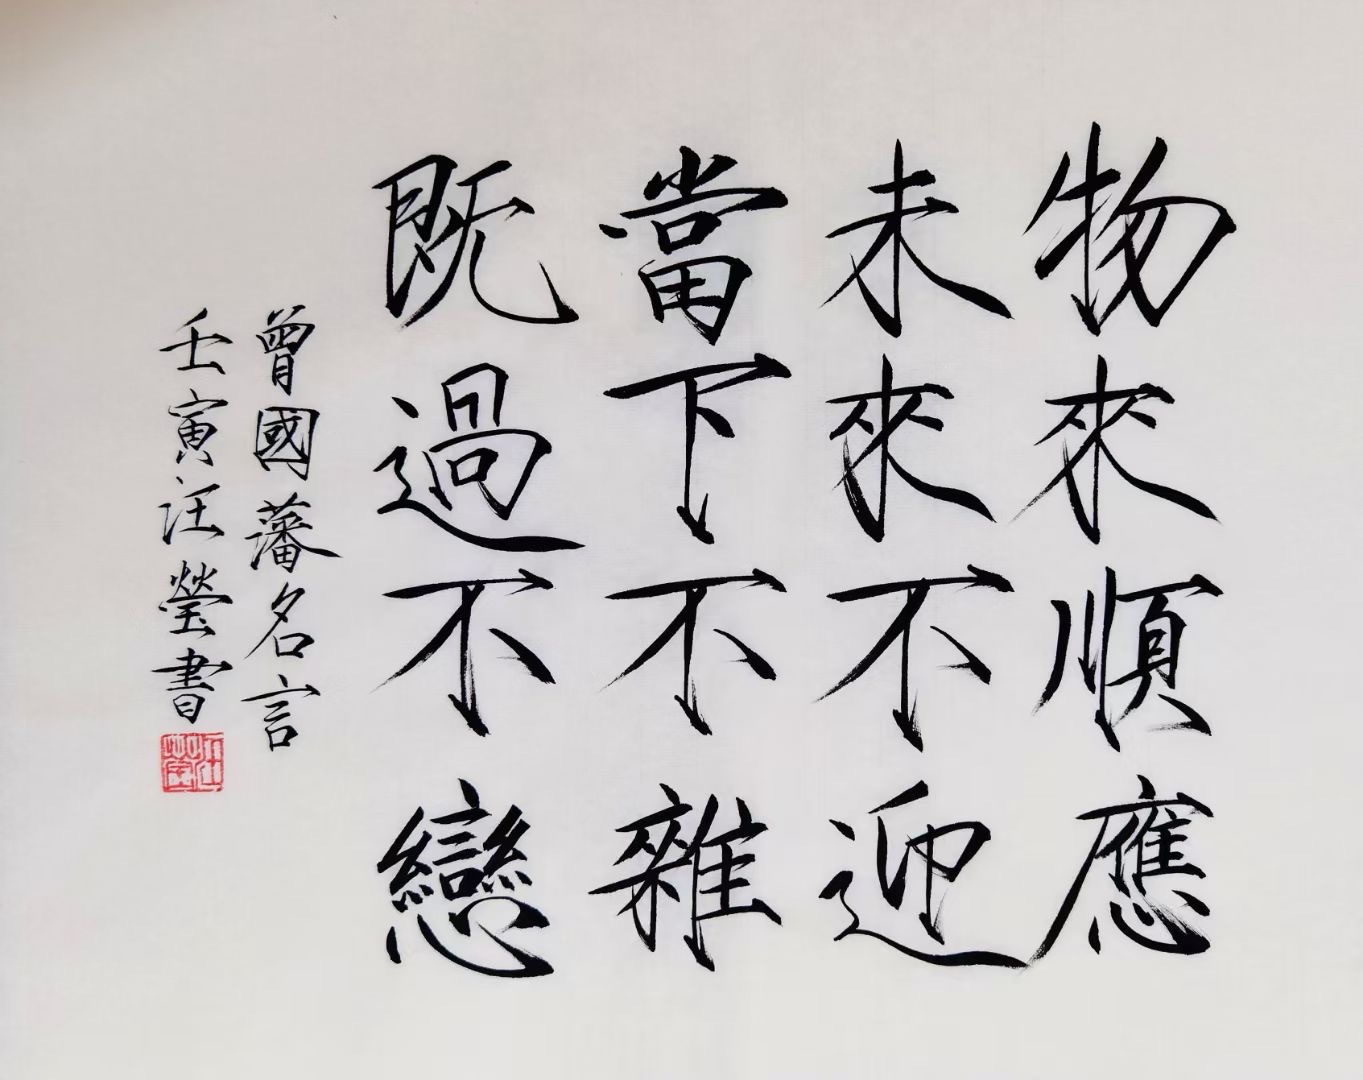 物來順應
未來不迎
當下不雜
既過不戀
曾國藩名言
壬寅汪瑩書